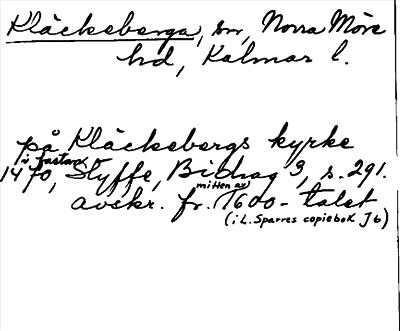 Kläckeberga, sn, Norra Möre
hd, Kalmar l.
på Kläckebergs kyrke
i fastan
1470, Styffe, Bidrag 3, s. 291.
mitten av
avskr. fr. 1600-talet
(i L. Sparres copiebok J6)